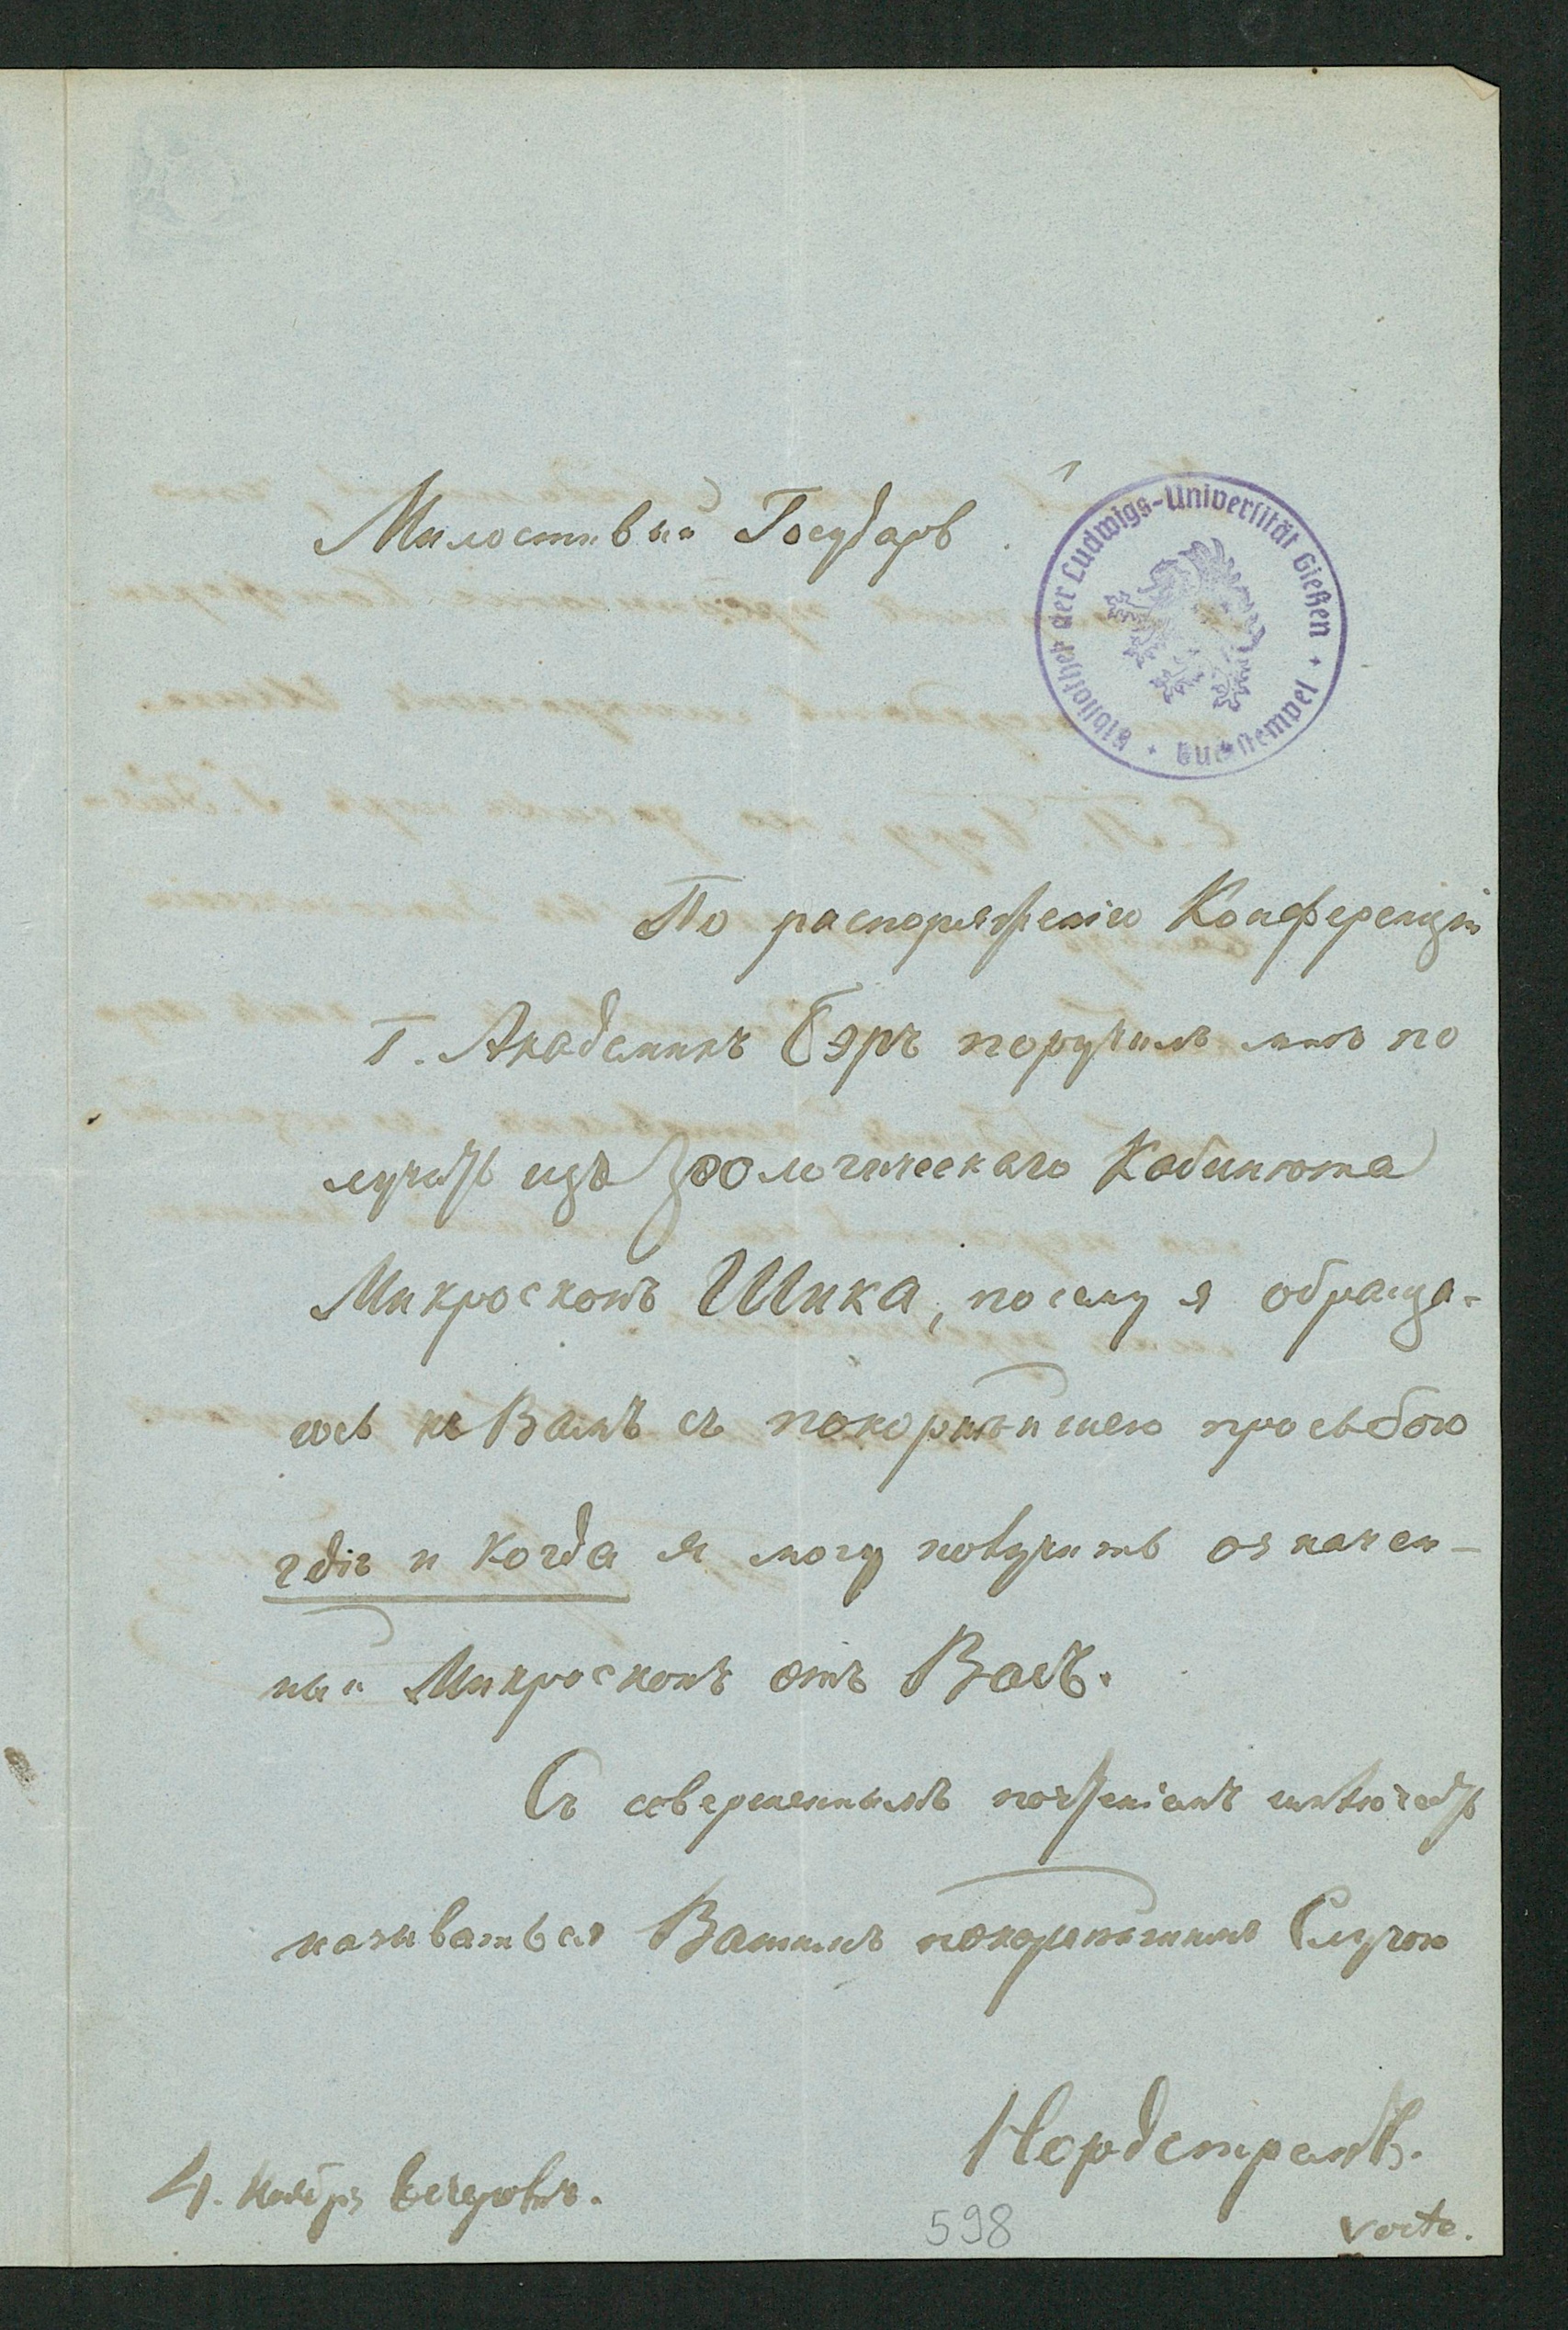 Милостивый Государь
Bibliothek der Ludwigs-Universität Gießen + Buchstempel +
По распоряженію Конференціи
Г. Академикъ Бэръ поручилъ мнѣ по
лучать изъ Зоологическаго Кабинета
Микроскопъ Шика, посему я обраща-
юсь къ Вамъ съ покорнѣйшею просьбою
гдѣ и когда я могу получить означен-
ный Микроскопъ отъ Васъ.
Съ совершеннымъ почтеніемъ имѣю честь
называться Вашимъ покорнѣйшимъ Слугою
Нордстремъ.
4. Ноября вечеромъ.
598
verte.